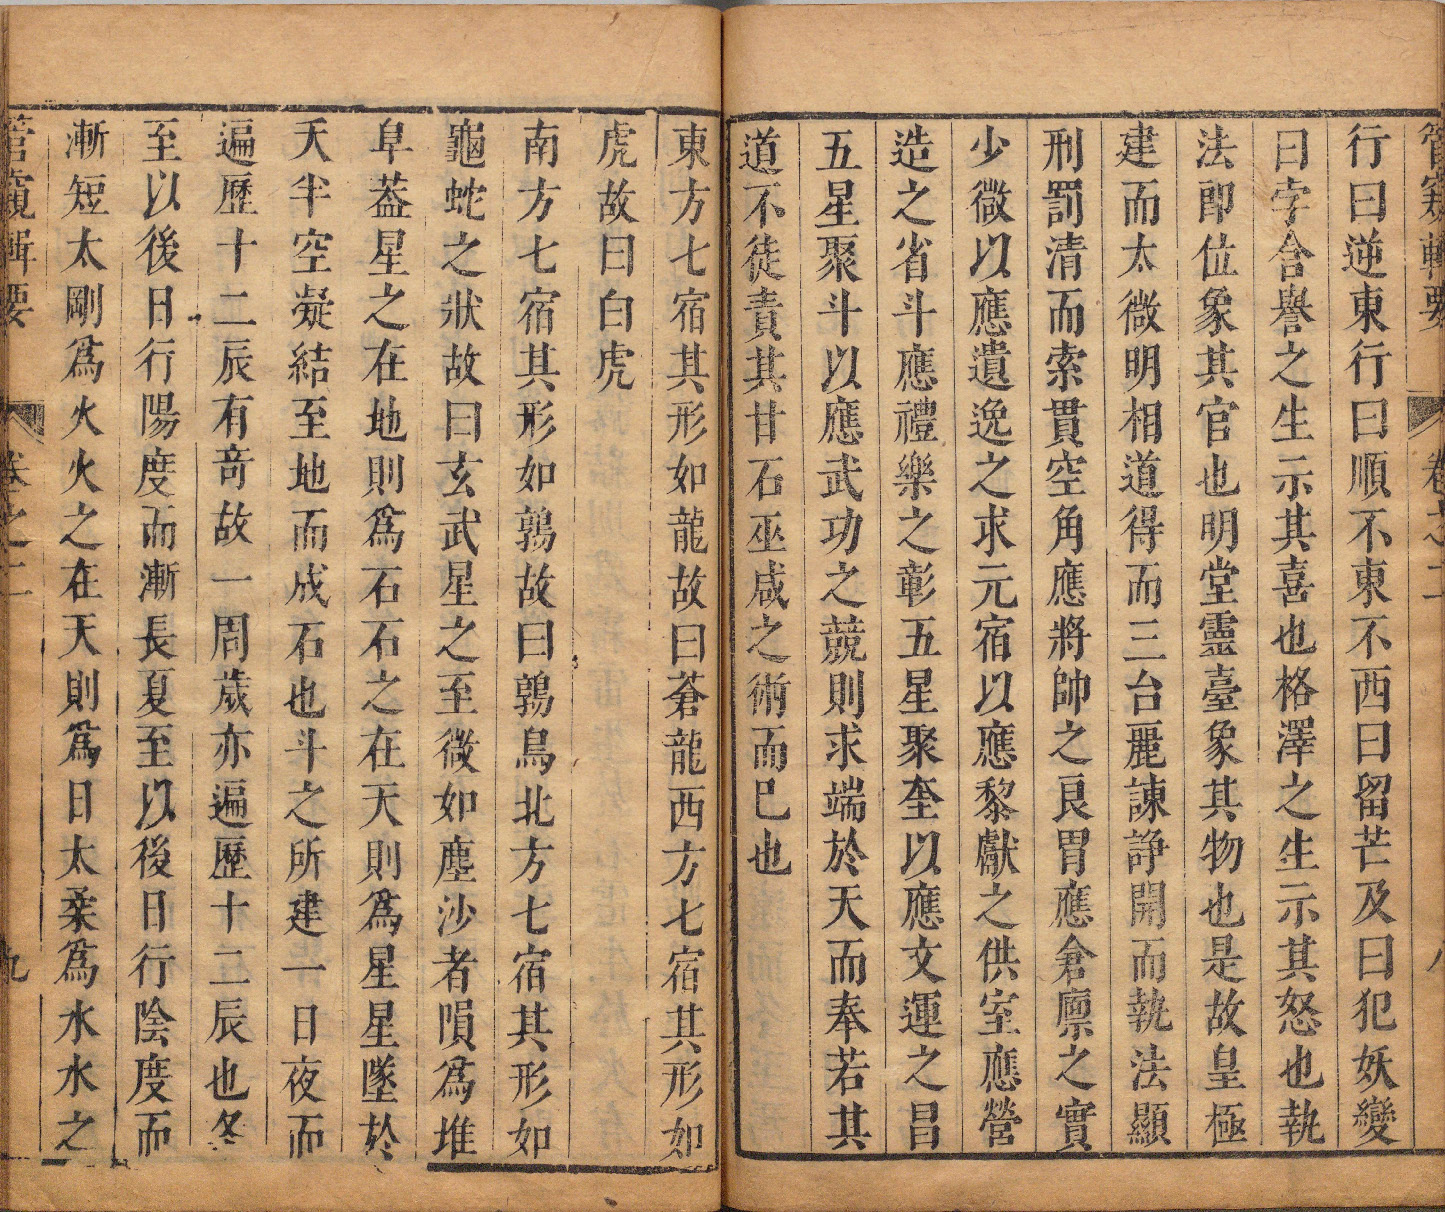 管窺輯要 卷之二 八
行曰逆東行曰順不東不西曰留芒及曰犯妖變
曰孛含譽之生示其喜也格澤之生示其怒也執
法郎位象其官也明堂靈臺象其物也是故皇極
建而太微明相道得而三台麗諫諍開而執法顯
刑罰清而索貫空角應將帥之良胃應倉廩之實
少微以應遺逸之求元宿以應黎獻之供室應營
造之省斗應禮樂之彰五星聚奎以應文運之昌
五星聚斗以應武功之競則求端於天而奉若其
道不徒責其甘石巫咸之術而已也
東方七宿其形如龍故曰蒼龍西方七宿其形如
虎故曰白虎
南方七宿其形如鶉故曰鶉鳥北方七宿其形如
龜蛇之狀故曰玄武星之至微如塵沙者隕為堆
阜葢星之在地則為石石之在天則為星星墜於
天半空凝結至地而成石也斗之所建一日夜而
遍歷十二辰有奇故一周歲亦遍歷十二辰也冬
至以後日行陽度而漸長夏至以後日行陰度而
漸短太剛為火火之在天則為日太柔為水水之
管窺輯要 卷之二 九